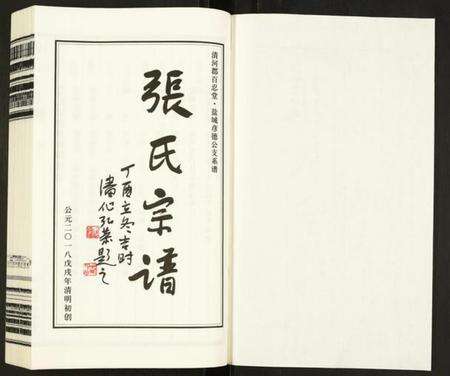 清河郡百忍堂·盐城彦德公支系谱
張氏宗譜
丁酉立冬吉时
潘化弘恭题之
公元二〇一八戊戌年清明初创